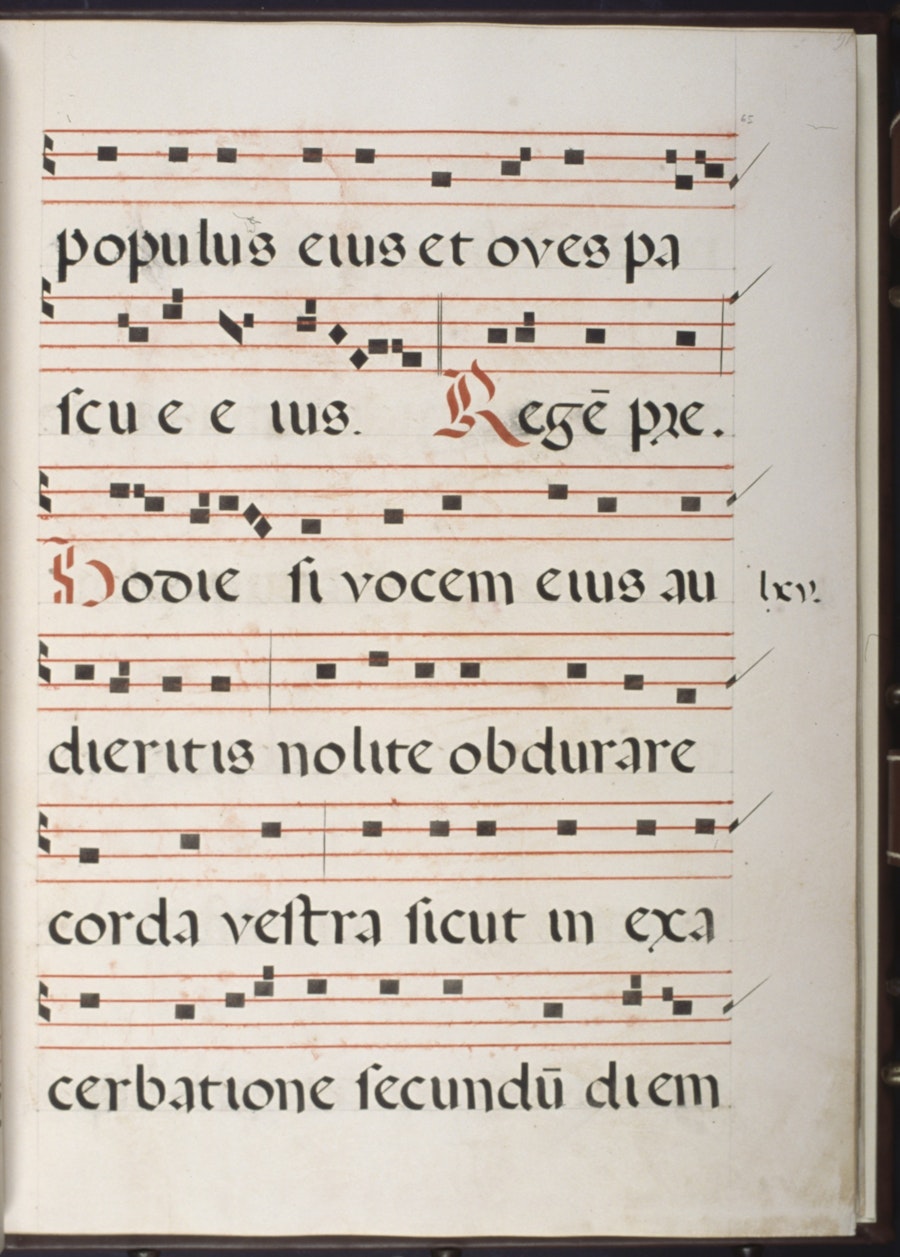 65
populus eius et oves pa
scu e e ius. Regē pre.
Hodie si vocem eius au
lxv.
dieritis nolite obdurare
corda vestra sicut in exa
cerbatione secundū diem